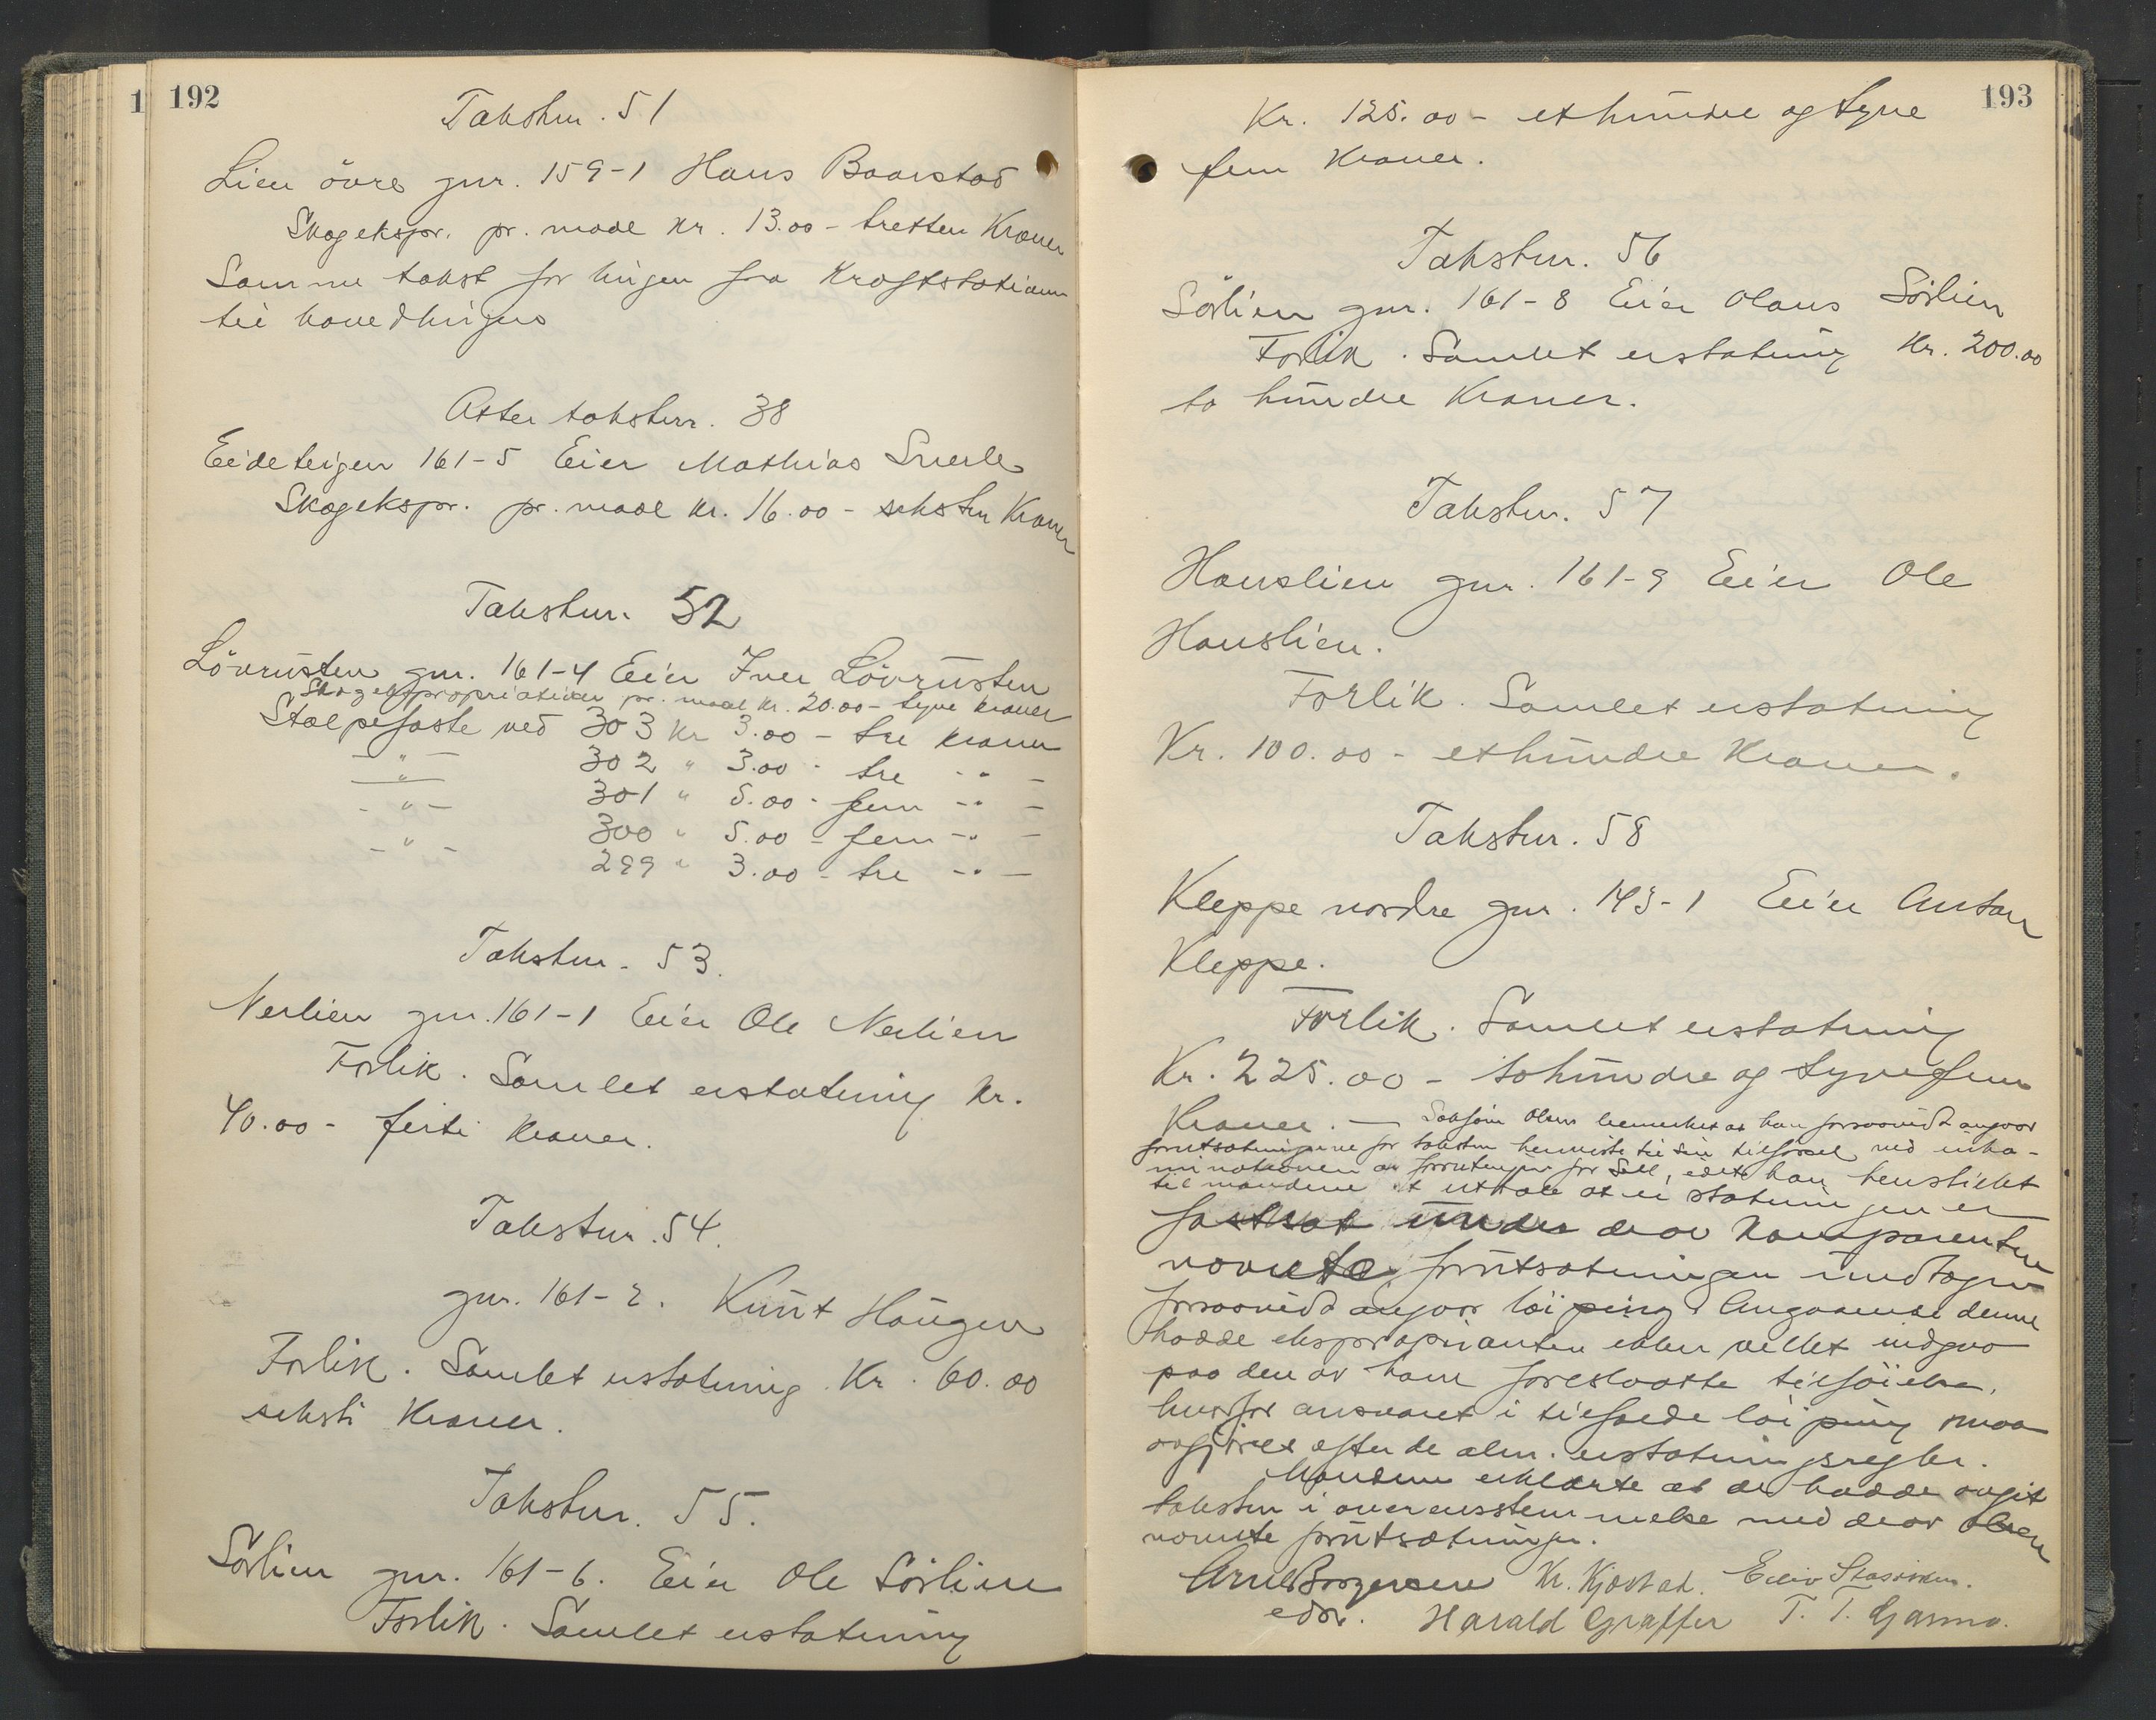 192
Takstnr. 51
Lien övre gnr. 159-1 Hans Baarstad
Skogekspr. pr. maal kr. 13.00 - tretten Kroner
Samme takst for linjen fra Kraftstationen
til hovedlinjen
Atter takstnr. 38
Eideteigen 161-5 Eier Mathias Snerle
Skogekspr. pr. maal kr. 16.00 - seksten Kroner
Takstnr. 52
Lövrusten gnr. 161-4 Eier Iver Lövrusten
Skogekspropriation pr. maal kr. 20.00 - tyve kroner
Stolpefæste ved 303 kr 3.00 - tre kroner
- " - 302 " 3.00 - tre - " -
- " - 301 " 5.00 - fem - " -
- " - 300 " 5.00 - fem - " -
- " - 299 " 3.00 - tre - " -
Takstnr. 53.
Nerlien gnr. 161-1 Eier Ole Nerlien
Forlik. Samlet erstatning kr.
40.00 - firti kroner.
Takstnr. 54.
gnr. 161-2. Knut Haugen
Forlik. Samlet erstatning Kr. 60.00
seksti Kroner.
Takstnr. 55.
Sörlien gnr. 161-6. Eier Ole Sörlien
Forlik. Samlet erstatning
193
Kr. 125.00 - ethundre og tyve
fem Kroner.
Takstnr. 56
Sörlien gnr. 161-8 Eier Olaus Sörlien
Forlik. Samlet erstatning Kr. 200.00
to hundre Kroner.
Takstnr. 57
Hanslien gnr. 161-9 Eier Ole
Hanslien.
Forlik. Samlet erstatning
Kr. 100.00 - ethundre Kroner.
Takstnr. 58
Kleppe nordre gnr. 143-1 Eier Anton
Kleppe.
Forlik. Samlet erstatning
Kr. 225.00 - tohundre og tyvefem
Kroner. — Saksfører Olsen bemerket at han forsaavidt angaar
forutsætningene for taksten henviste til sin tilförsel ved
av for Sell, idet han henstillet
til mændene at uttale at erstatningen er
fastsat under de av komparenten
nævnte forutsætninger undtagen
forsaavidt angaar löiping. Angaaende denne
hadde eksproprianten ikke villet indgaa
paa den av ham foreslaatte tilföielse,
hvorfor ansvaret i tilfælde löiping maa
avgjöres efter de alm. erstatningsregler.
Mændene erklærte at de hadde avgit
taksten i overensstemmelse med de av Olsen
nævnte forutsætninger.
Arne Borgersen Kr. Kjorstad. Eiliv
edsv. Harald Graffer T. T. Garmo.